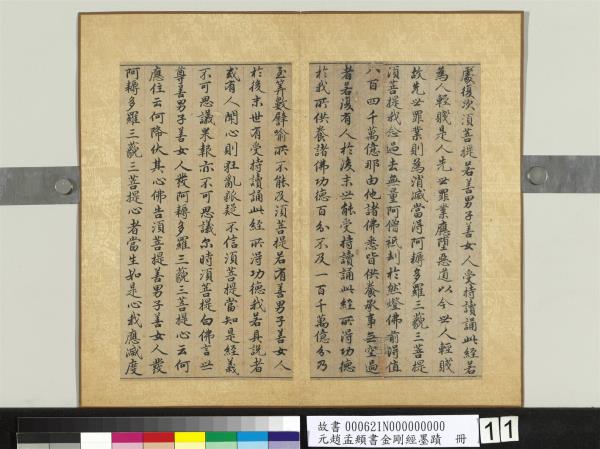 處復次須菩提若善男子善女人受持讀誦此經若
為人輕賤是人先世罪業應墮惡道以今世人輕賤
故先世罪業則為消滅當得阿耨多羅三藐三菩提
須菩提我念過去無量阿僧祇劫於然燈佛前得值
八百四千萬億那由他諸佛悉皆供養承事無空過
者若復有人於後末世能受持讀誦此經所得功德
於我所供養諸佛功德百分不及一百千萬億分乃
至筭數譬喻所不能及須菩提若有善男子善女人
於後末世有受持讀誦此經所得功德我若具說者
或有人聞心則狂亂狐疑不信須菩提當知是經義
不可思議果報亦不可思議尒時須菩提白佛言世
尊善男子善女人發阿耨多羅三藐三菩提心云何
應住云何降伏其心佛告須菩提善男子善女人發
阿耨多羅三藐三菩提心者當生如是心我應滅度
故書 000621N000000000
元趙孟頫書金剛經墨蹟 冊
11